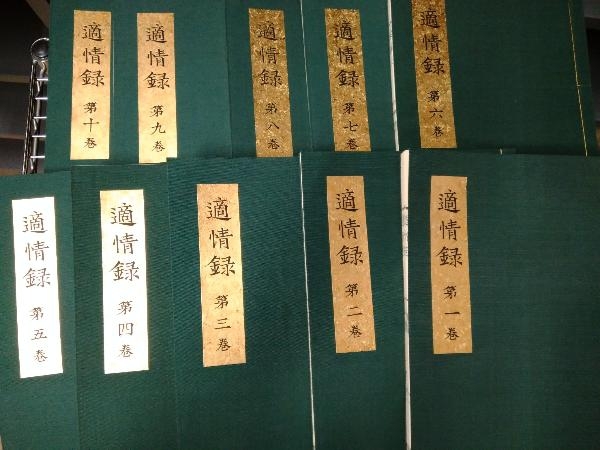 適情録 第十巻
適情録 第九巻
適情録 第八巻
適情録 第七巻
適情録 第六巻
適情録 第五巻
適情録 第四巻
適情録 第三巻
適情録 第二巻
適情録 第一巻